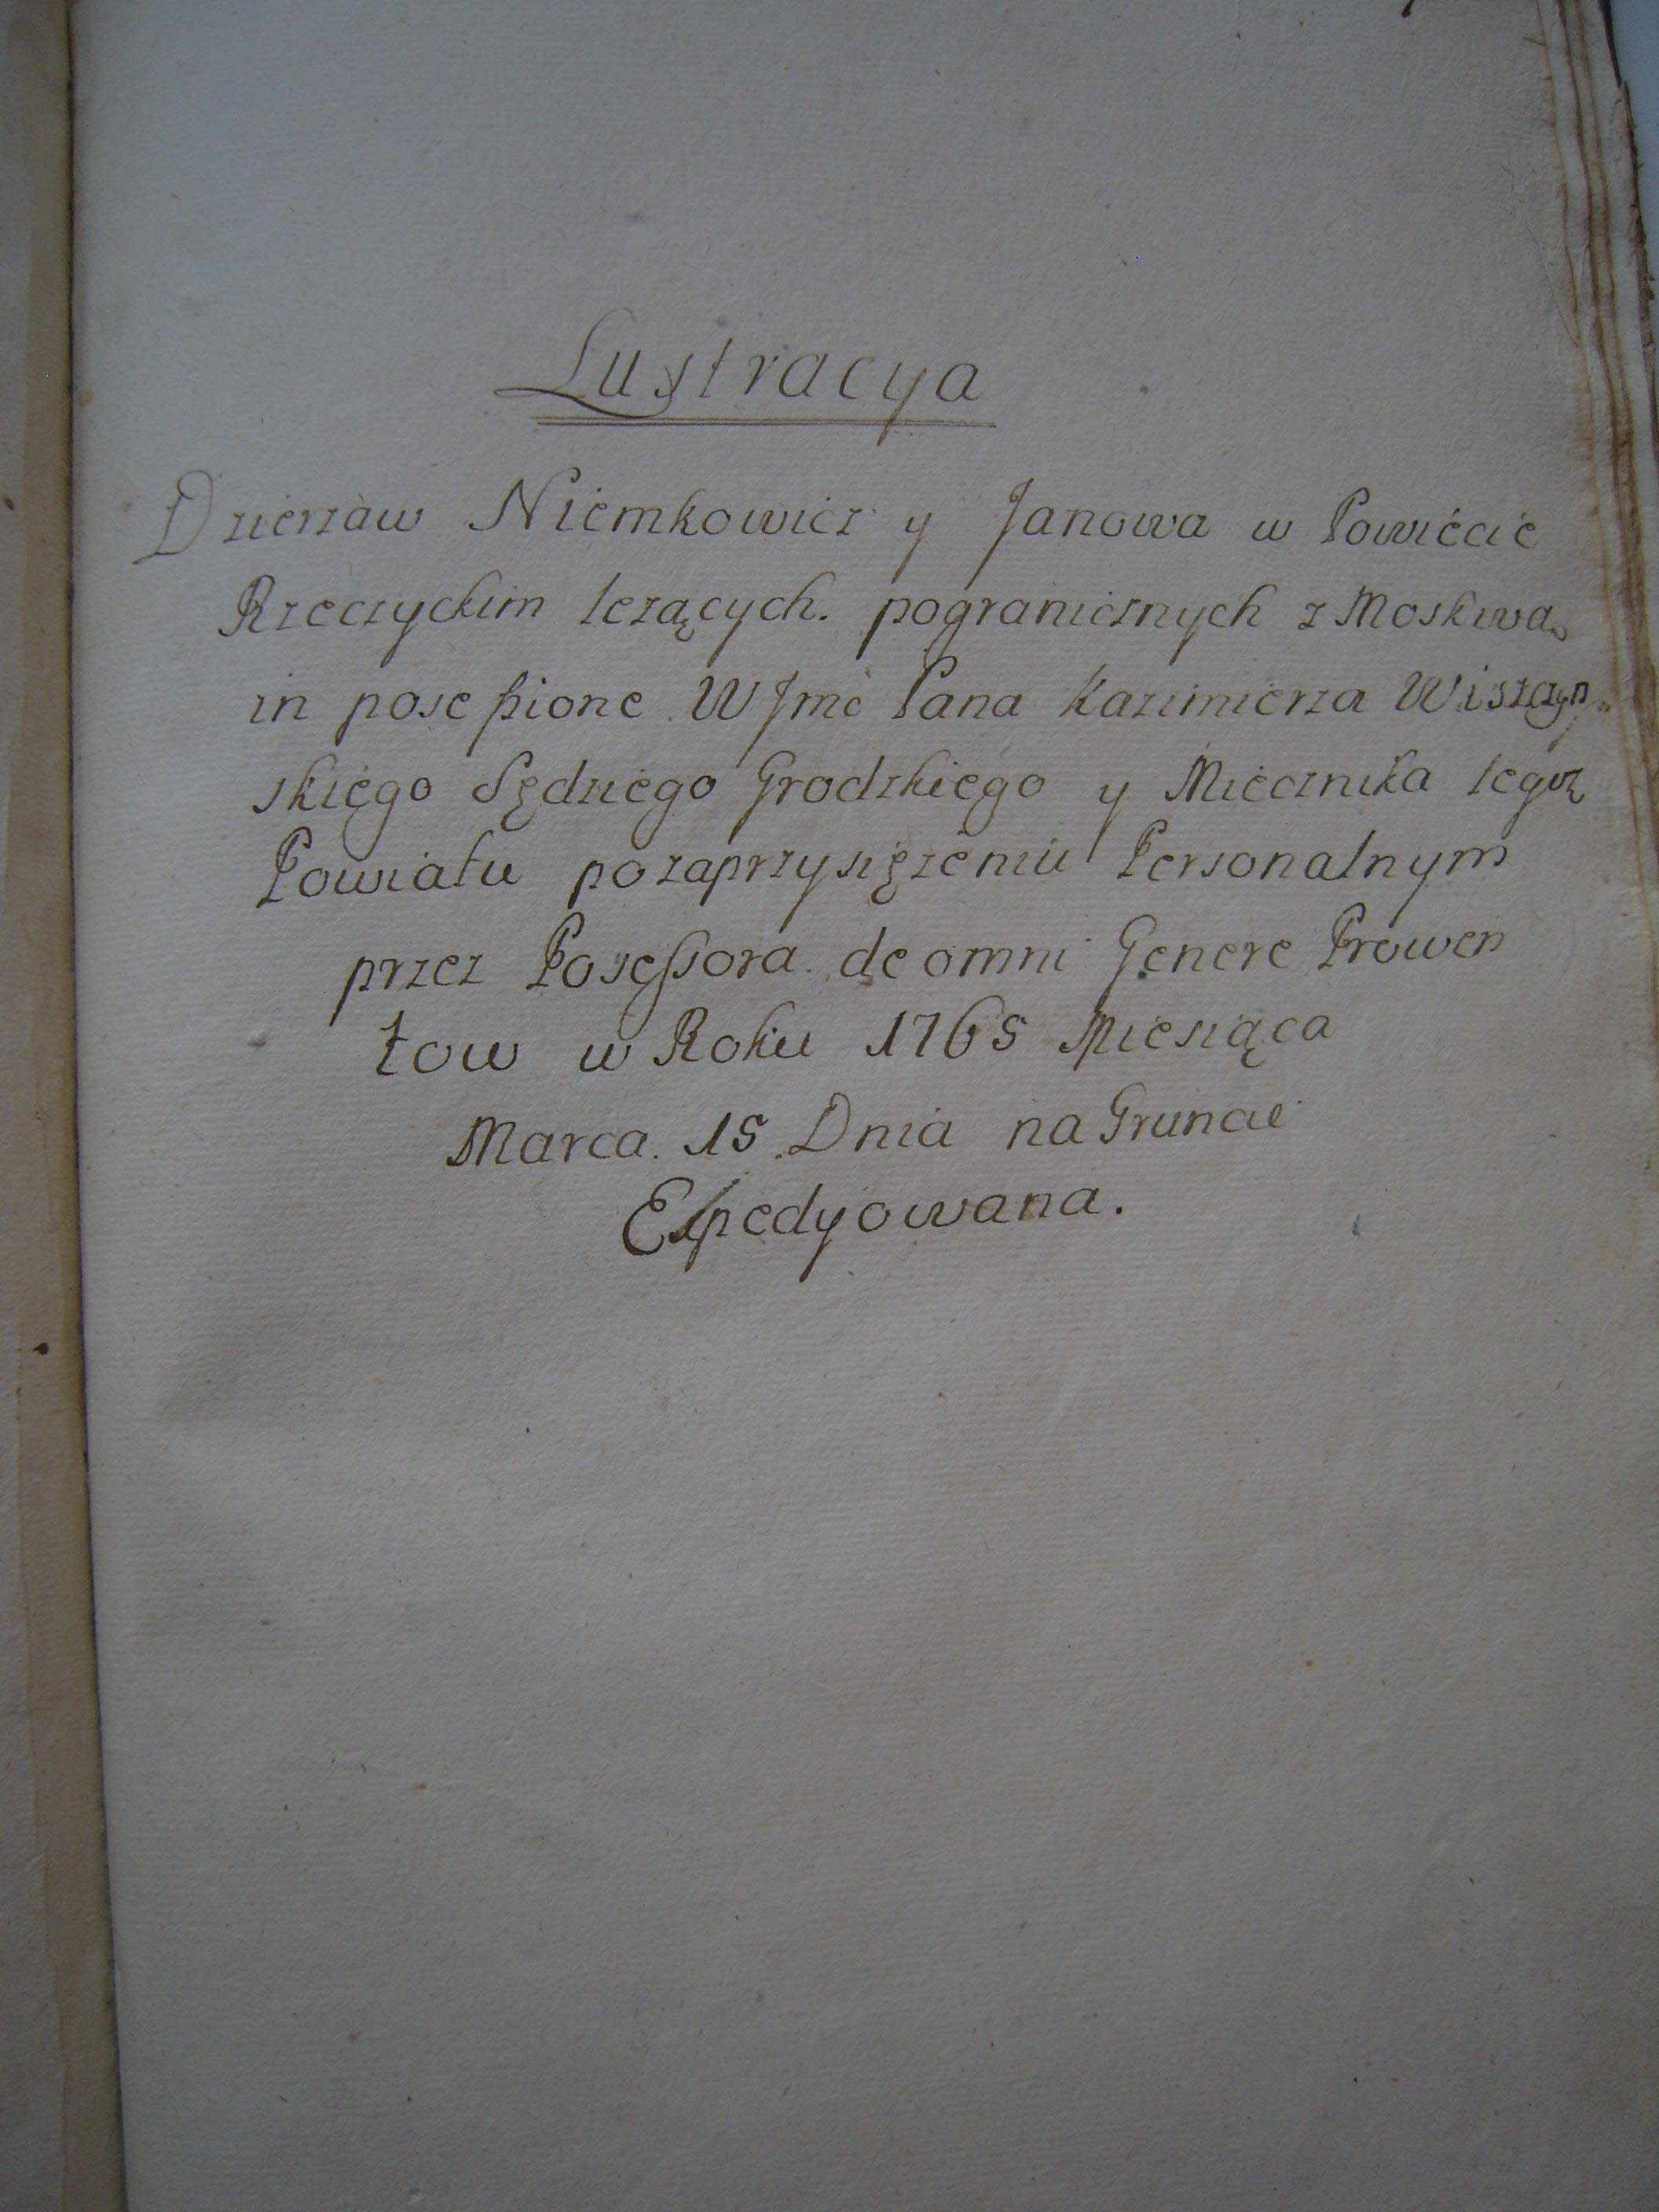 Lustracya
Dzierzaw Niemkowicz y Janowa w Powiecie
Rzeczyckim lezących. pogranicznych z Moskwą
in posessione WJmć Pana Kazimierza Wiszczyn-
skiego Sędziego Grodzkiego y Miecznika tegoz
Powiatu po zaprzysięzeniu Personalnym
przez Posessora de omni Genere Prowen
tow w Roku 1765 Miesiąca
Marca 15 Dnia na Gruncie
Expedyowana.